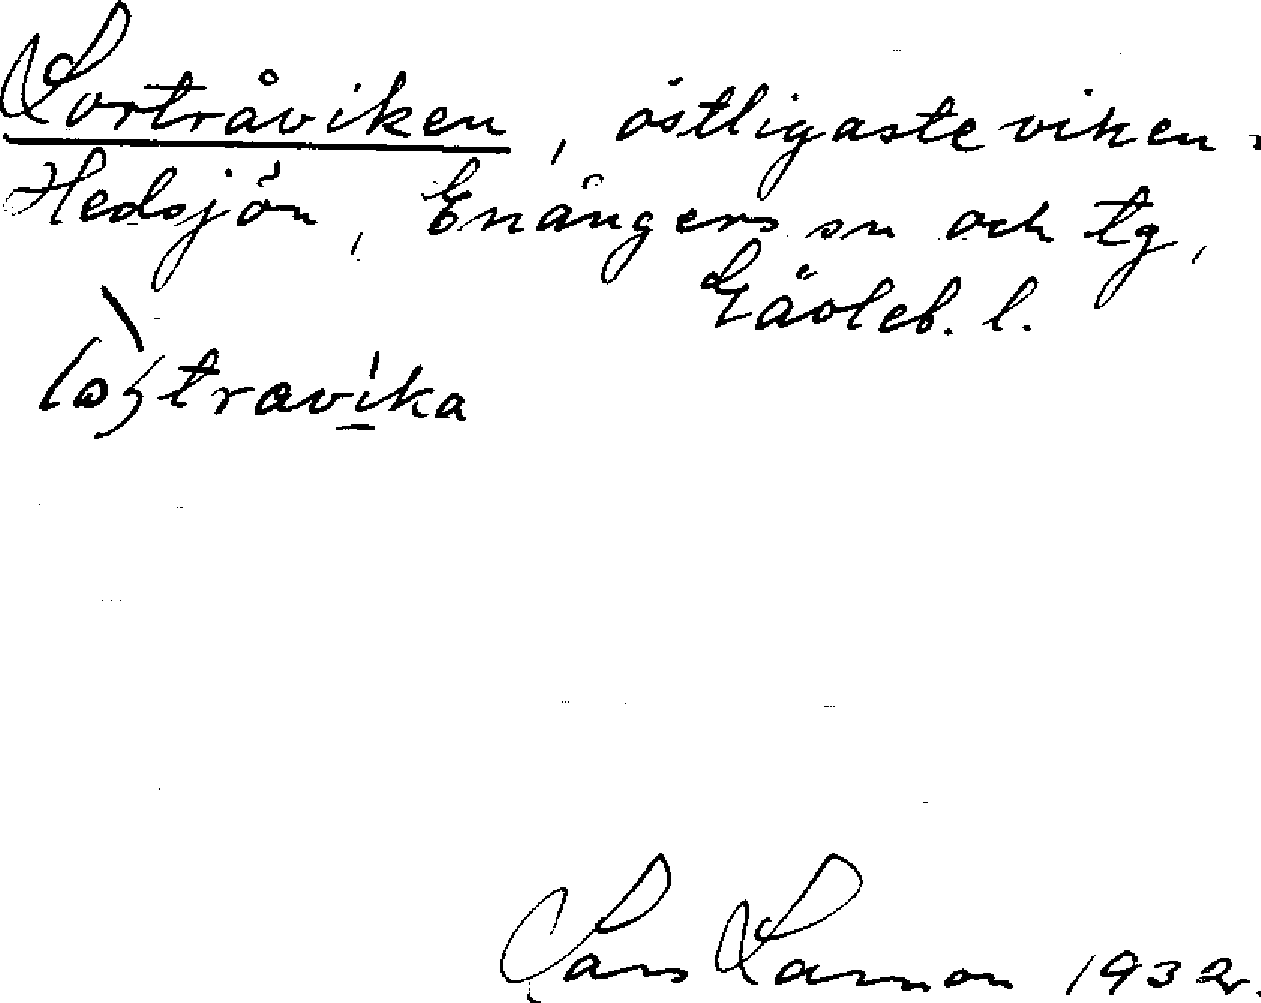 Lortråviken, östligaste viken i
Hedsjön, Enångers sn och tg,
Gävleb. l.
Lars Larsson 1932.